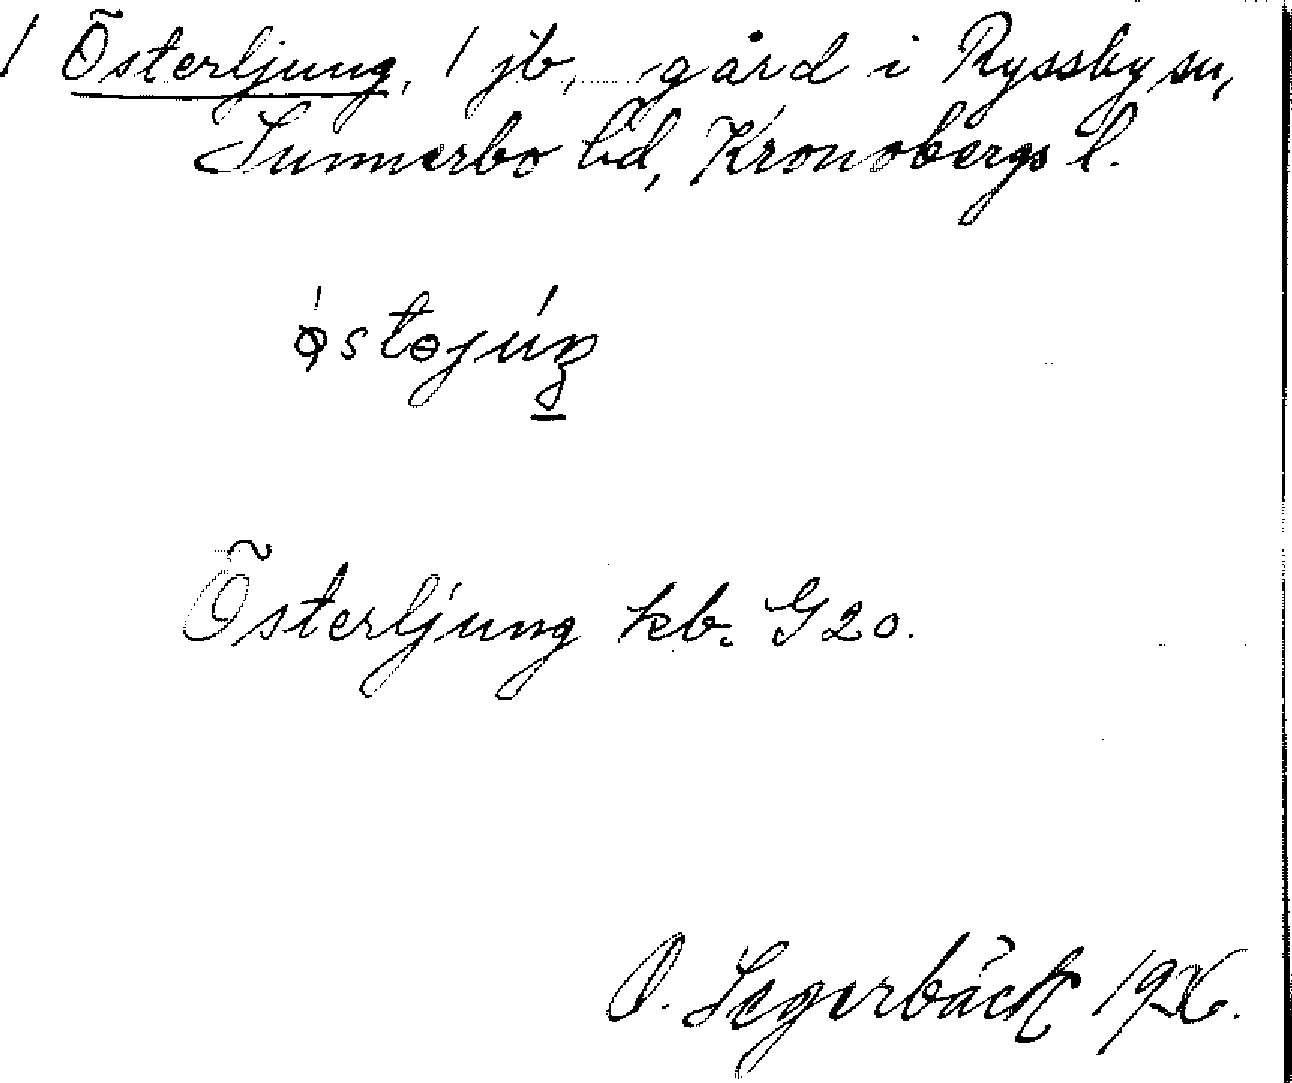 Österljung, 1 jb, gård i Ryssby sn,
Sunnerbo hd, Kronobergs l.
Österljung kb. G 20.
Segerbäck